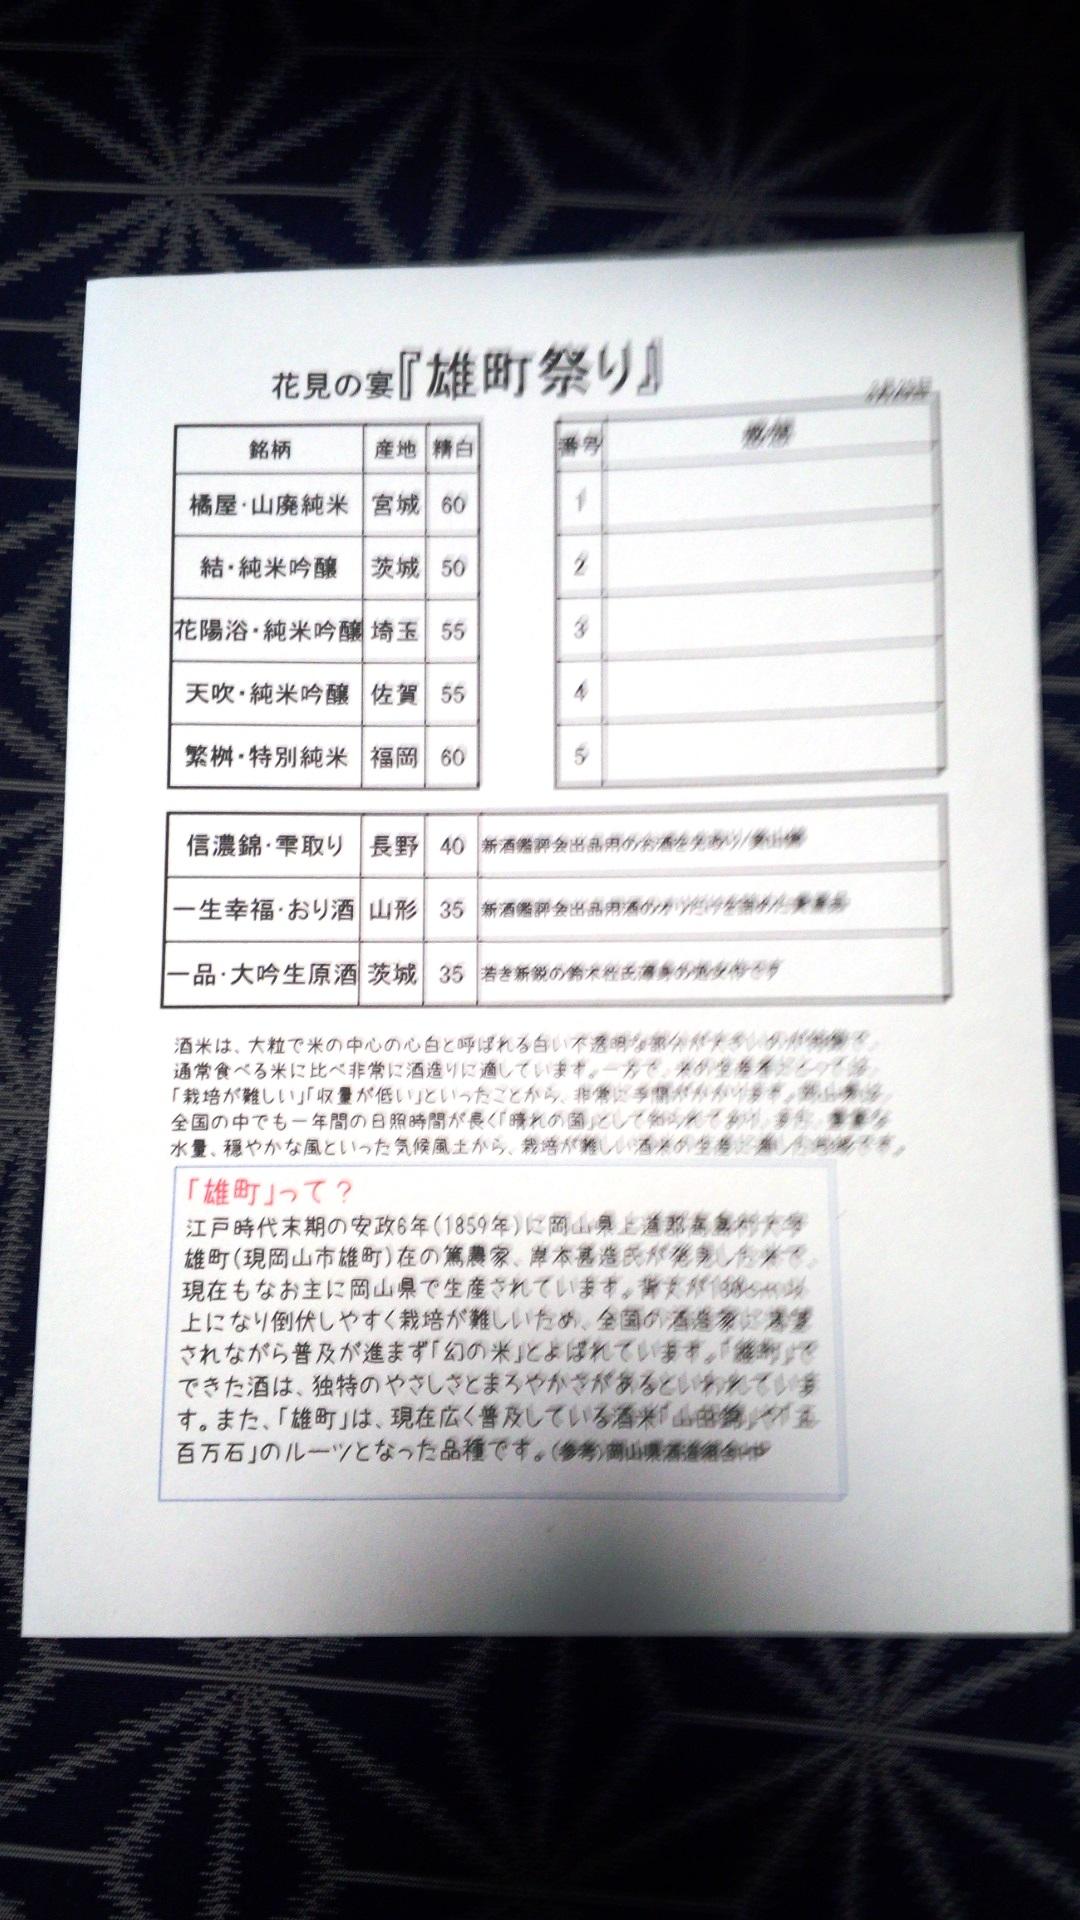 花見の宴『雄町祭り』
銘柄 産地 精白
橘屋・山廃純米 宮城 60
結・純米吟醸 茨城 50
花陽浴・純米吟醸 埼玉 55
天吹・純米吟醸 佐賀 55
繁桝・特別純米 福岡 60
番号 感想
1
2
3
4
5
信濃錦・雫取り 長野 40 新酒鑑評会出品用のお酒を
一生幸福・おり酒 山形 35 新酒鑑評会出品用酒の
一品・大吟生原酒 茨城 35 若き新鋭の鈴木杜氏渾身の処女作です
酒米は、大粒で米の中心の心白と呼ばれる白い不透明な部分が大きいのが特徴で、
通常食べる米に比べ非常に酒造りに適しています。一方で、米の生産者にとっては、
「栽培が難しい」「収量が低い」といったことから、非常に手間がかかります。岡山県は、
全国の中でも一年間の日照時間が長く「晴れの国」として知られており、また、豊富な
水量、穏やかな風といった気候風土から、栽培が難しい酒米の生産に適した地域です。
「雄町」って？
江戸時代末期の安政6年(1859年)に岡山県上道郡高島村大字
雄町(現岡山市雄町)在の篤農家、岸本甚造氏が発見した米で、
現在もなお主に岡山県で生産されています。背丈が160cm以
上になり倒伏しやすく栽培が難しいため、全国の酒造家に渇望
されながら普及が進まず「幻の米」とよばれています。「雄町」で
できた酒は、独特のやさしさとまろやかさがあるといわれていま
す。また、「雄町」は、現在広く普及している酒米「山田錦」や「五
百万石」のルーツとなった品種です。(参考)岡山県酒造組合